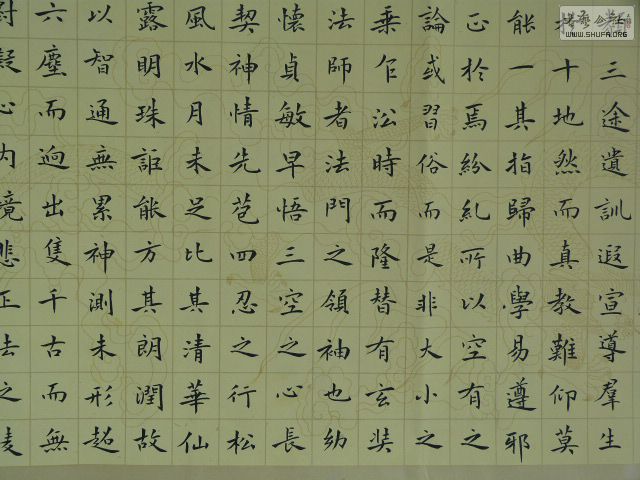 三途遺訓遐宣導羣生
於十地然而真教難仰莫
能一其指歸曲學易遵耶
正於焉紛糺所以空有之
論或習俗而是非大小之
乘乍沿時而隆替有玄奘
法師者法門之領袖也幼
懷貞敏早悟三空之心長
契神情先苞四忍之行松
風水月未足比其清華仙
露明珠詎能方其朗潤故
以智通無累神測未形超
六塵而迥出隻千古而無
對凝心内境悲正法之陵
WWW.SHUFA.ORG